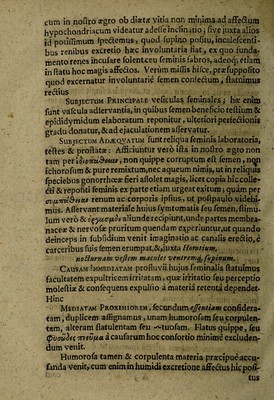 cum in nostro ægro ob diætæ vitia non minima ad affectum
hypochondriacum videatur adesse inclinatio, sive juxta alios
id potissimum spectemus, quod supino positu, incalescenti-
bus renibus excretio hæc involuntaria fiat, ex quo funda-
mento renes incusare solent, ceu seminis fabros, adeoq; etiam
in statu hoc magis affectos. Verùm missis hisce, præsupposito
quod excernatur involuntariè semen confectum, statuimus
rectius
SUBJECTUM PRINCIPALE vesiculas seminales; hæ enim
sunt vascula adservantia, in quibus semen beneficio testium &
epididymidum elaboratum reponitur, ulteriori perfectionis
gradu donatur, & ad ejaculationem asservatur.
SUBJECTUM ADÆQUATUM sunt reliqua feminis laboratoria,
testes & prostatæ: Afficiuntur verò ista in nostro ægro non
tam per ἰδιοπάθειαν, non quippe corruptum est semen, non
ichorosum & pure remixtum, nec aqueum nimis, ut in reliquis
speciebus gonorrhœæ fieri assolet magis, licet copia hîc colle-
cti & repositi seminis ex parte etiam urgeat exitum; quàm per
συμπάθειαν renum ac corporis ipsius, ut postpaulo videbi-
mus. Asservant materiale hujus symptomatis seu semen, stimu-
lum verò & ὀργασμὸν aliunde recipiunt, unde partes membra-
naceæ & nervosæ pruritum quendam experiuntur, ut quando
deinceps in subsidium venit imaginatio ac canalis erectio, é
carceribus suis semen erumpat, & juxta Horatium,
nocturnam vestem maculet ventremq; supinum.
CAUSAM IMMEDIATAM profluvii hujus seminalis statuimus
facultatem expultricem irritatam, quæ irritatio seu perceptio
molestiæ & consequens expulsio à materia retenta dependet.
Hinc
MEDIATAM PROXIMIOREM, secundum essentiam considera-
tam, duplicem assignamus, unam humorosam seu corpulen-
tam, alteram flatulentam seu -tuosam. Flatus quippe, seu
φυσῶδες πνεῦμα à causarum hoc consortio minimè excluden-
dum venit.
Humorosa tamen & corpulenta materia præcipuè accu-
sanda venit, cum enim in humidi excretione affectus hic posi-
tus